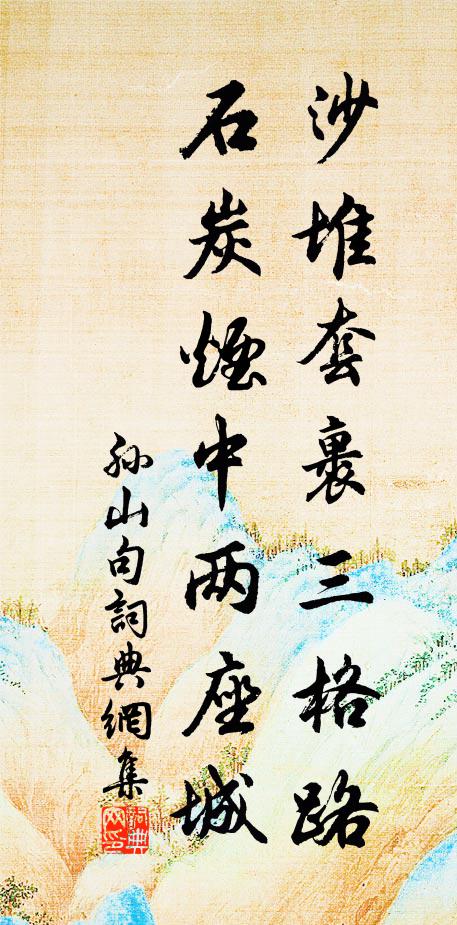 沙堆套裹三格路
石炭煙中两座城
孙山句詞典網集
詞典
网印